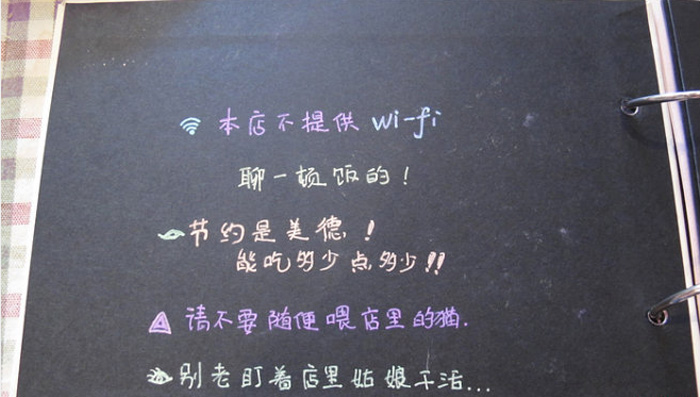 本店不提供 Wi-fi
聊一顿饭的！
节约是美德！
能吃多少点多少!!
请不要随便喂店里的猫.
别老盯着店里姑娘干活...